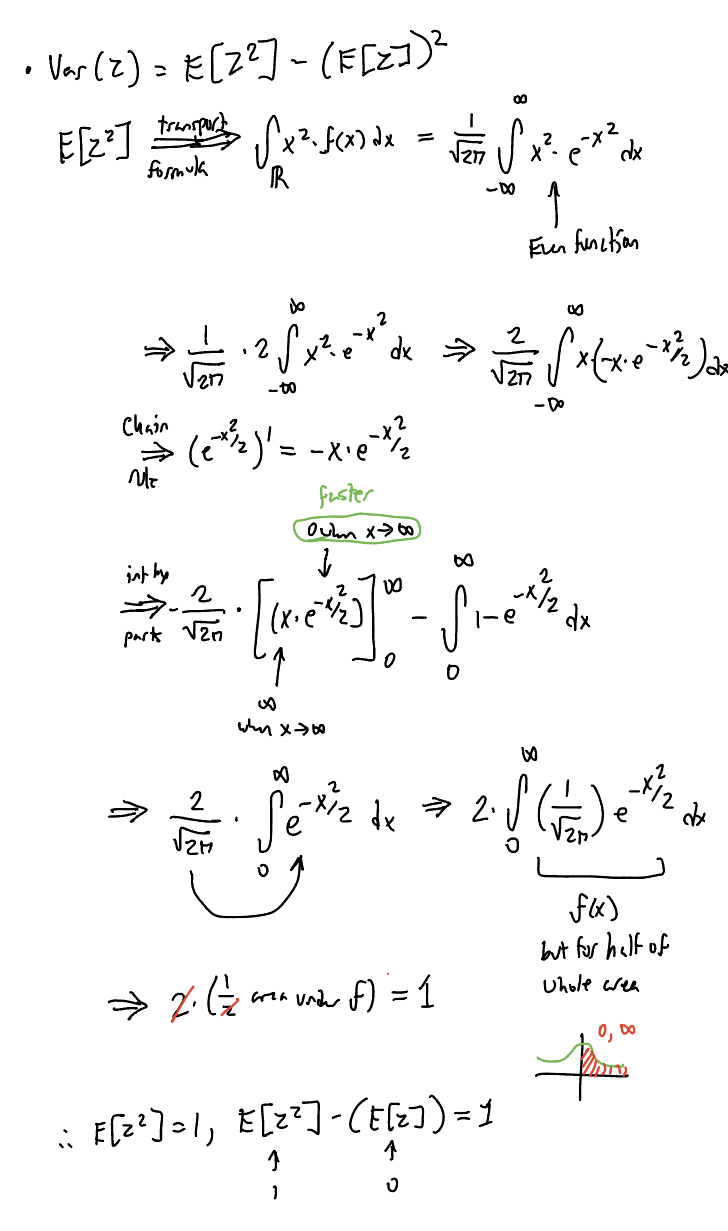 • Var(Z) = E[Z²] - (E[Z])²
E[Z²] transport formula ⟹ ∫_ℝ x²·f(x) dx = 1/√2π ∫_{-∞}^{∞} x²·e^{-x²} dx
↑
Even function
⇒ 1/√2π · 2 ∫_{-∞}^{∞} x²·e^{-x²} dx ⇒ 2/√2π ∫_{-∞}^{∞} x·(-x·e^{-x²/2}) dx
Chain rule ⇒ (e^{-x²/2})' = -x·e^{-x²/2}
faster
0 when x→∞
↓
int by parts ⇒ -2/√2π · [(x·e^{-x²/2})]_0^∞ - ∫_0^∞ 1-e^{-x²/2} dx
↑
∞
when x→∞
⇒ 2/√2π · ∫_0^∞ e^{-x²/2} dx ⇒ 2·∫_0^∞ (1/√2π) e^{-x²/2} dx
f(x)
but for half of
whole area
⇒ 2·(1/2 area under f) = 1
0, ∞
∴ E[Z²]=1, E[Z²]-(E[Z])=1
↑ ↑
1 0